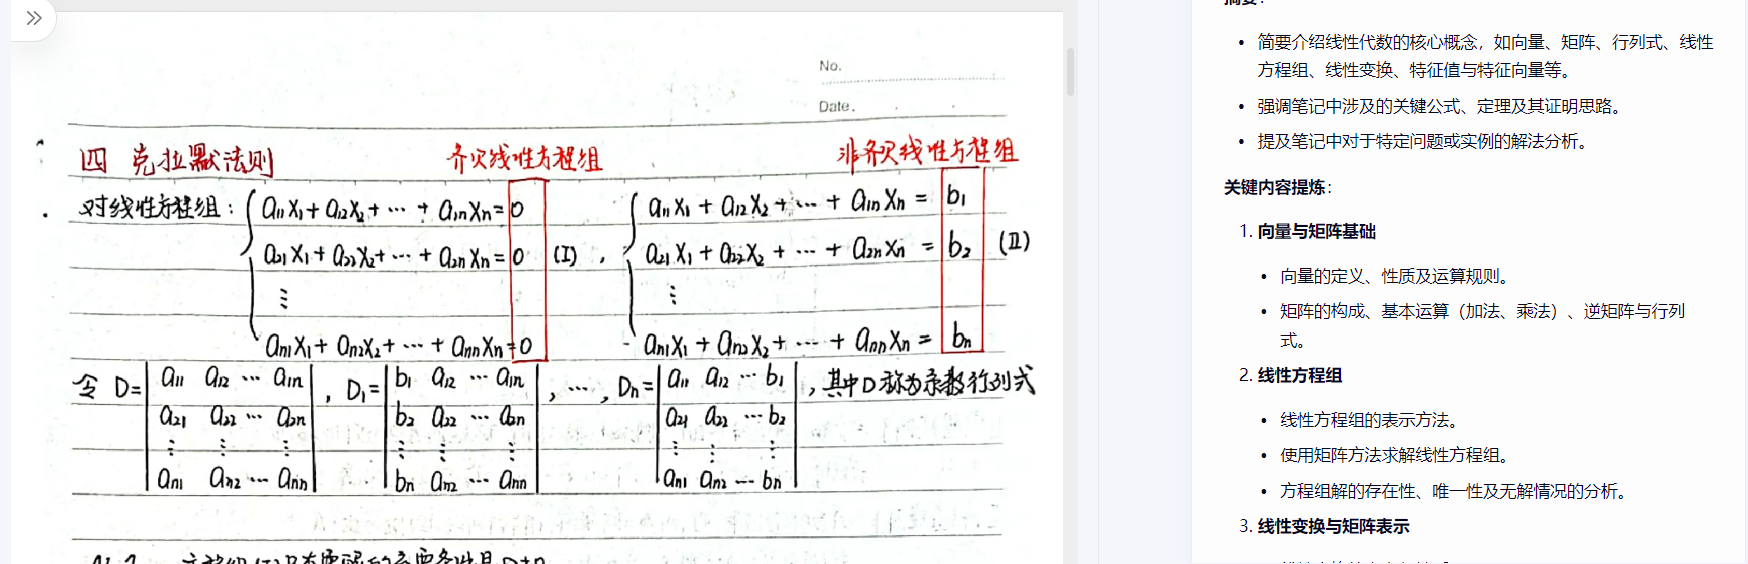 No.
Date.
四 克拉默法则 齐次线性方程组 非齐次线性方程组
对线性方程组: a11X1+a12X2+…+a1nXn=0 a11X1+a12X2+…+a1nXn=b1
a21X1+a22X2+…+a2nXn=0 (I), a21X1+a22X2+…+a2nXn=b2 (II)
⋮ ⋮
an1X1+an2X2+…+annXn=0 an1X1+an2X2+…+annXn=bn
令 D=| a11 a12 … a1n |, D1=| b1 a12 … a1n |, …, Dn=| a11 a12 … b1 |, 其中D称为系数行列式
a21 a22 … a2n b2 a22 … a2n a21 a22 … b2
⋮ ⋮ ⋮ ⋮ ⋮ ⋮ ⋮ ⋮ ⋮
an1 an2 … ann bn an2 … ann an1 an2 … bn
摘要:
• 简要介绍线性代数的核心概念，如向量、矩阵、行列式、线性
方程组、线性变换、特征值与特征向量等。
• 强调笔记中涉及的关键公式、定理及其证明思路。
• 提及笔记中对于特定问题或实例的解法分析。
关键内容提炼:
1. 向量与矩阵基础
• 向量的定义、性质及运算规则。
• 矩阵的构成、基本运算（加法、乘法）、逆矩阵与行列
式。
2. 线性方程组
• 线性方程组的表示方法。
• 使用矩阵方法求解线性方程组。
• 方程组解的存在性、唯一性及无解情况的分析。
3. 线性变换与矩阵表示